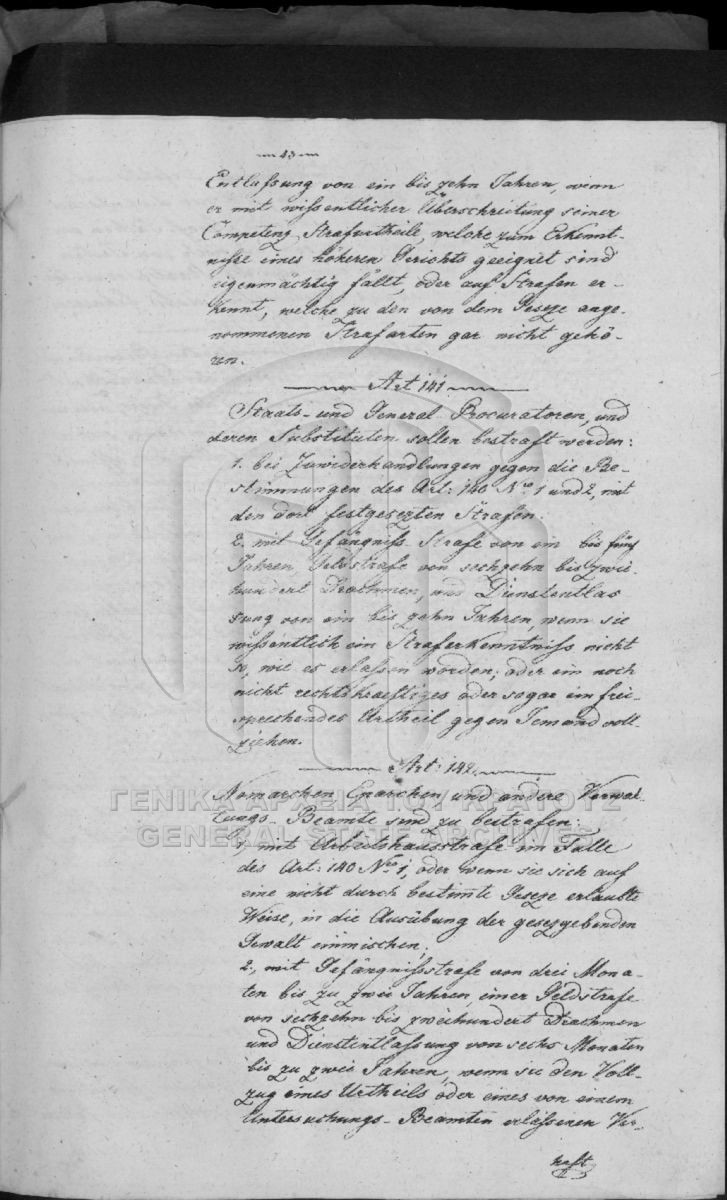 43
Entlaßung von ein bis zehn Jahren, wenn
er mit wißentlicher Überschreitung seiner
Competenz, Strafurtheile, welche zum Erkennt-
niße eines höheren Gerichts geeignet sind
eigenmächtig fällt, oder auf Strafen er-
kennt, welche zu den von dem Geseze ange-
nommenen Strafarten gar nicht gehö-
ren.
Art 141
Staats- und General Procuratoren, und
deren Substituten sollen bestraft werden:
1. bei Zuwiderhandlungen gegen die Be-
stimmungen des Art: 140 Nro 1 und 2, mit
den dort festgesezten Strafen.
2. mit Gefängniss Strafe von ein bis fünf
Jahren, Geldstrafe von sechzehn bis zwei-
hundert Drachmen, und Dienstentlas
sung von ein bis zehn Jahren, wenn sie
wißentlich ein Straferkenntniss nicht
so, wie es erlassen worden; oder ein noch
nicht rechtskraeftiges oder sogar ein frei-
sprechendes Urtheil gegen Jemand voll-
ziehen.
Art: 142.
Nomarchen, Eparchen, und andere Verwal-
tungs-Beamte sind zu bestrafen:
1, mit Arbeitshausstrafe im Falle
des Art: 140 Nro 1, oder wenn sie sich auf
eine nicht durch bestimte Geseze erlaubte
Weise, in die Ausübung der gesezgebenden
Gewalt einmischen,
2., mit Gefängnißstrafe von drei Mona-
ten bis zu zwei Jahren, einer Geldstrafe
von sechzehn bis zweihundert Drachmen
und Dienstentlaßung von sechs Monaten
bis zu zwei Jahren, wenn sie den Voll-
zug eines Urtheils oder eines von einem
Untersuchungs-Beamten erlaßenen Ver-
haft
ΓΕΝΙΚΑ ΑΡΧΕΙΑ ΤΟΥ ΚΡΑΤΟΥΣ
GENERAL STATE ARCHIVES